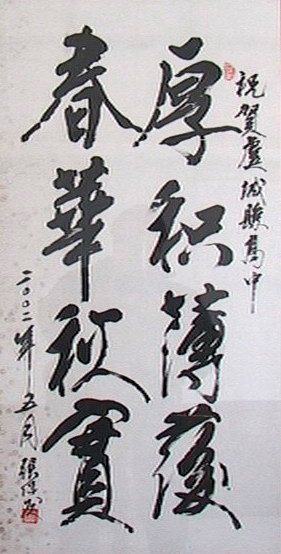 祝賀盧城駿高中
厚积薄發
春華秋實
二〇〇二年五月 張